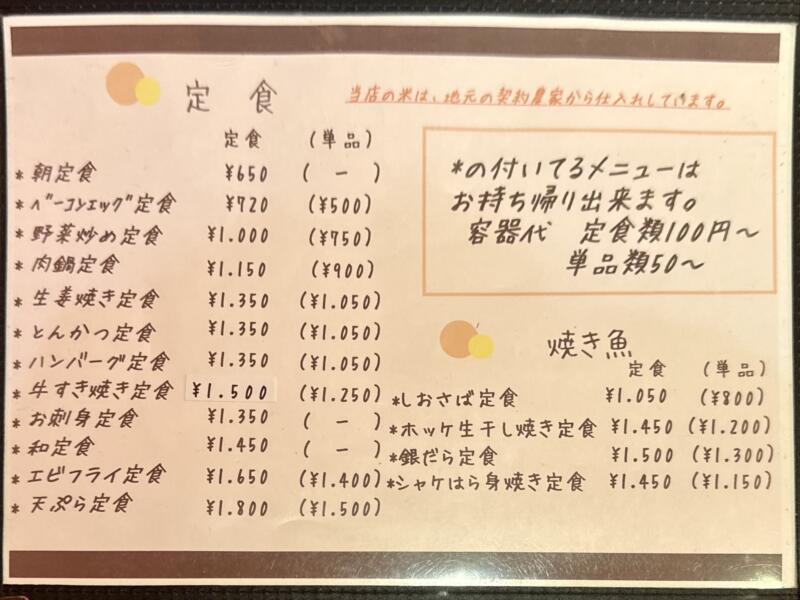 定 食
当店の米は、地元の契約農家から仕入れしています。
定食 (単品)
*朝定食 ¥650 ( ー )
*ベーコンエッグ定食 ¥720 (¥500)
*野菜炒め定食 ¥1.000 (¥750)
*肉鍋定食 ¥1.150 (¥900)
*生姜焼き定食 ¥1.350 (¥1.050)
*とんかつ定食 ¥1.350 (¥1.050)
*ハンバーグ定食 ¥1.350 (¥1.050)
*牛すき焼き定食 ¥1.500 (¥1.250)
*お刺身定食 ¥1.350 ( ー )
*和定食 ¥1.450 ( ー )
*エビフライ定食 ¥1.650 (¥1.400)
*天ぷら定食 ¥1.800 (¥1.500)
*の付いてるメニューは
お持ち帰り出来ます。
容器代 定食類100円〜
単品類50〜
焼き魚
定食 (単品)
*しおさば定食 ¥1.050 (¥800)
*ホッケ生干し焼き定食 ¥1.450 (¥1.200)
*銀だら定食 ¥1.500 (¥1.300)
*シャケはら身焼き定食 ¥1.450 (¥1.150)